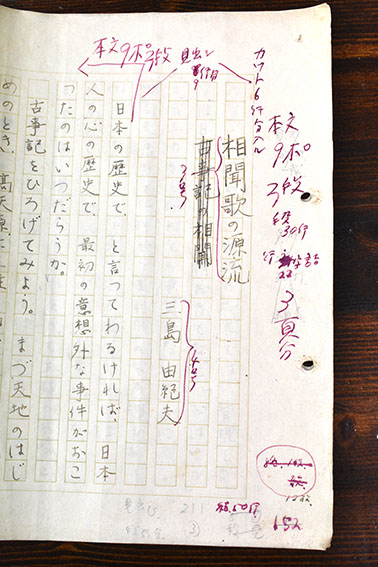 カット6行分入ル
本文
9ポ
3段
30行
22
3頁分
152
見出し
9行分
本文9ポ3段
相聞歌の源流
古事記の相聞
3号
三島由紀夫
4号
日本の歴史で、と言つてわるければ、日本
人の心の歴史で、最初の意想外な事件がおこ
つたのはいつだらうか。
古事記をひろげてみよう。まづ天地のはじ
めのとき、高天原